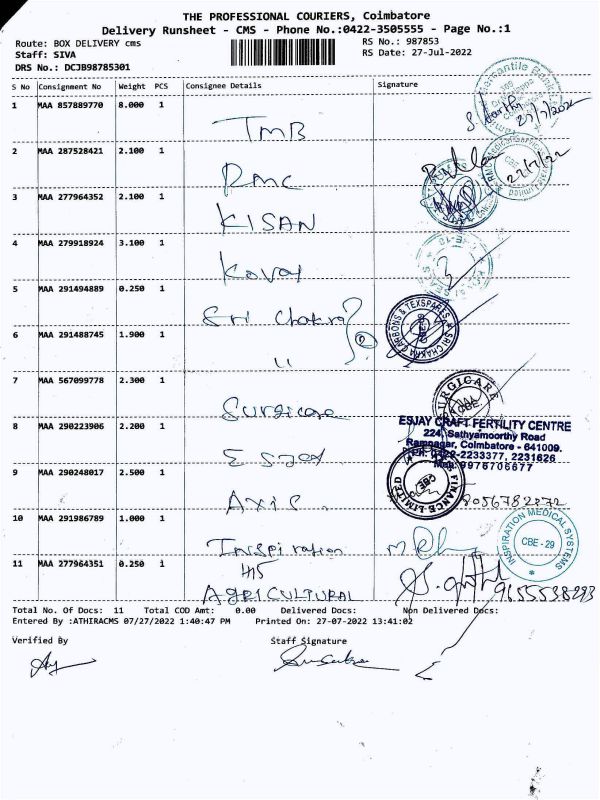 THE PROFESSIONAL COURIERS, Coimbatore
Delivery Runsheet - CMS - Phone No.:0422-3505555 - Page No.:1
Route: BOX DELIVERY cms RS No.: 987853
Staff: SIVA RS Date: 27-Jul-2022
DRS No.: DCJB98785301
S No Consignment No Weight PCS Consignee Details Signature
1 MAA 857889770 8.000 1 TMB 27/7/2022
2 MAA 287528421 2.100 1 RMC 27/7/22
3 MAA 277964352 2.100 1 KISAN
4 MAA 279918924 3.100 1 Kovai
5 MAA 291494889 0.250 1 Sri Chakra
SRI CHAKRA CARBONS & TEXSPARES
6 MAA 291488745 1.900 1 " 2
7 MAA 567099778 2.300 1 Surgicare
SURGICARE
8 MAA 290223906 2.200 1 Esjay
ESJAY CRAFT FERTILITY CENTRE
224, Sathyamoorthy Road
Ramnagar, Coimbatore - 641009.
PH: 0422-2233377, 2231626
Mob: 9976706677
9 MAA 290248017 2.500 1 Axis
FINANCE LIMITED
CBE
8056782272
10 MAA 291986789 1.000 1 Inspiration
INSPIRATION MEDICAL SYSTEMS
CBE - 29
11 MAA 277964351 0.250 1 AGRICULTURAL 9655538293
Total No. Of Docs: 11 Total COD Amt: 0.00 Delivered Docs: Non Delivered Docs:
Entered By :ATHIRACMS 07/27/2022 1:40:47 PM Printed On: 27-07-2022 13:41:02
Verified By Staff Signature